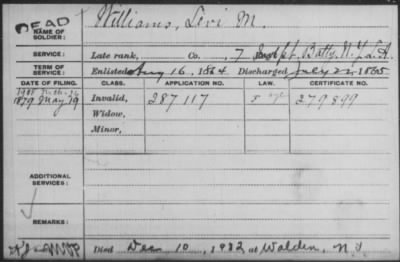 DEAD
NAME OF SOLDIER: Williams, Levi M.
SERVICE: Late rank, Co. , 7 Batty. N.Y. L.A.
TERM OF SERVICE: Enlisted Aug 16, 1864 Discharged July 22, 1865
DATE OF FILING. CLASS. APPLICATION NO. LAW. CERTIFICATE NO.
1879 May 19 Invalid, 287 117 279 899
Widow,
Minor,
ADDITIONAL SERVICES:
REMARKS:
Died Dec 10, 1932 at Walden, N Y